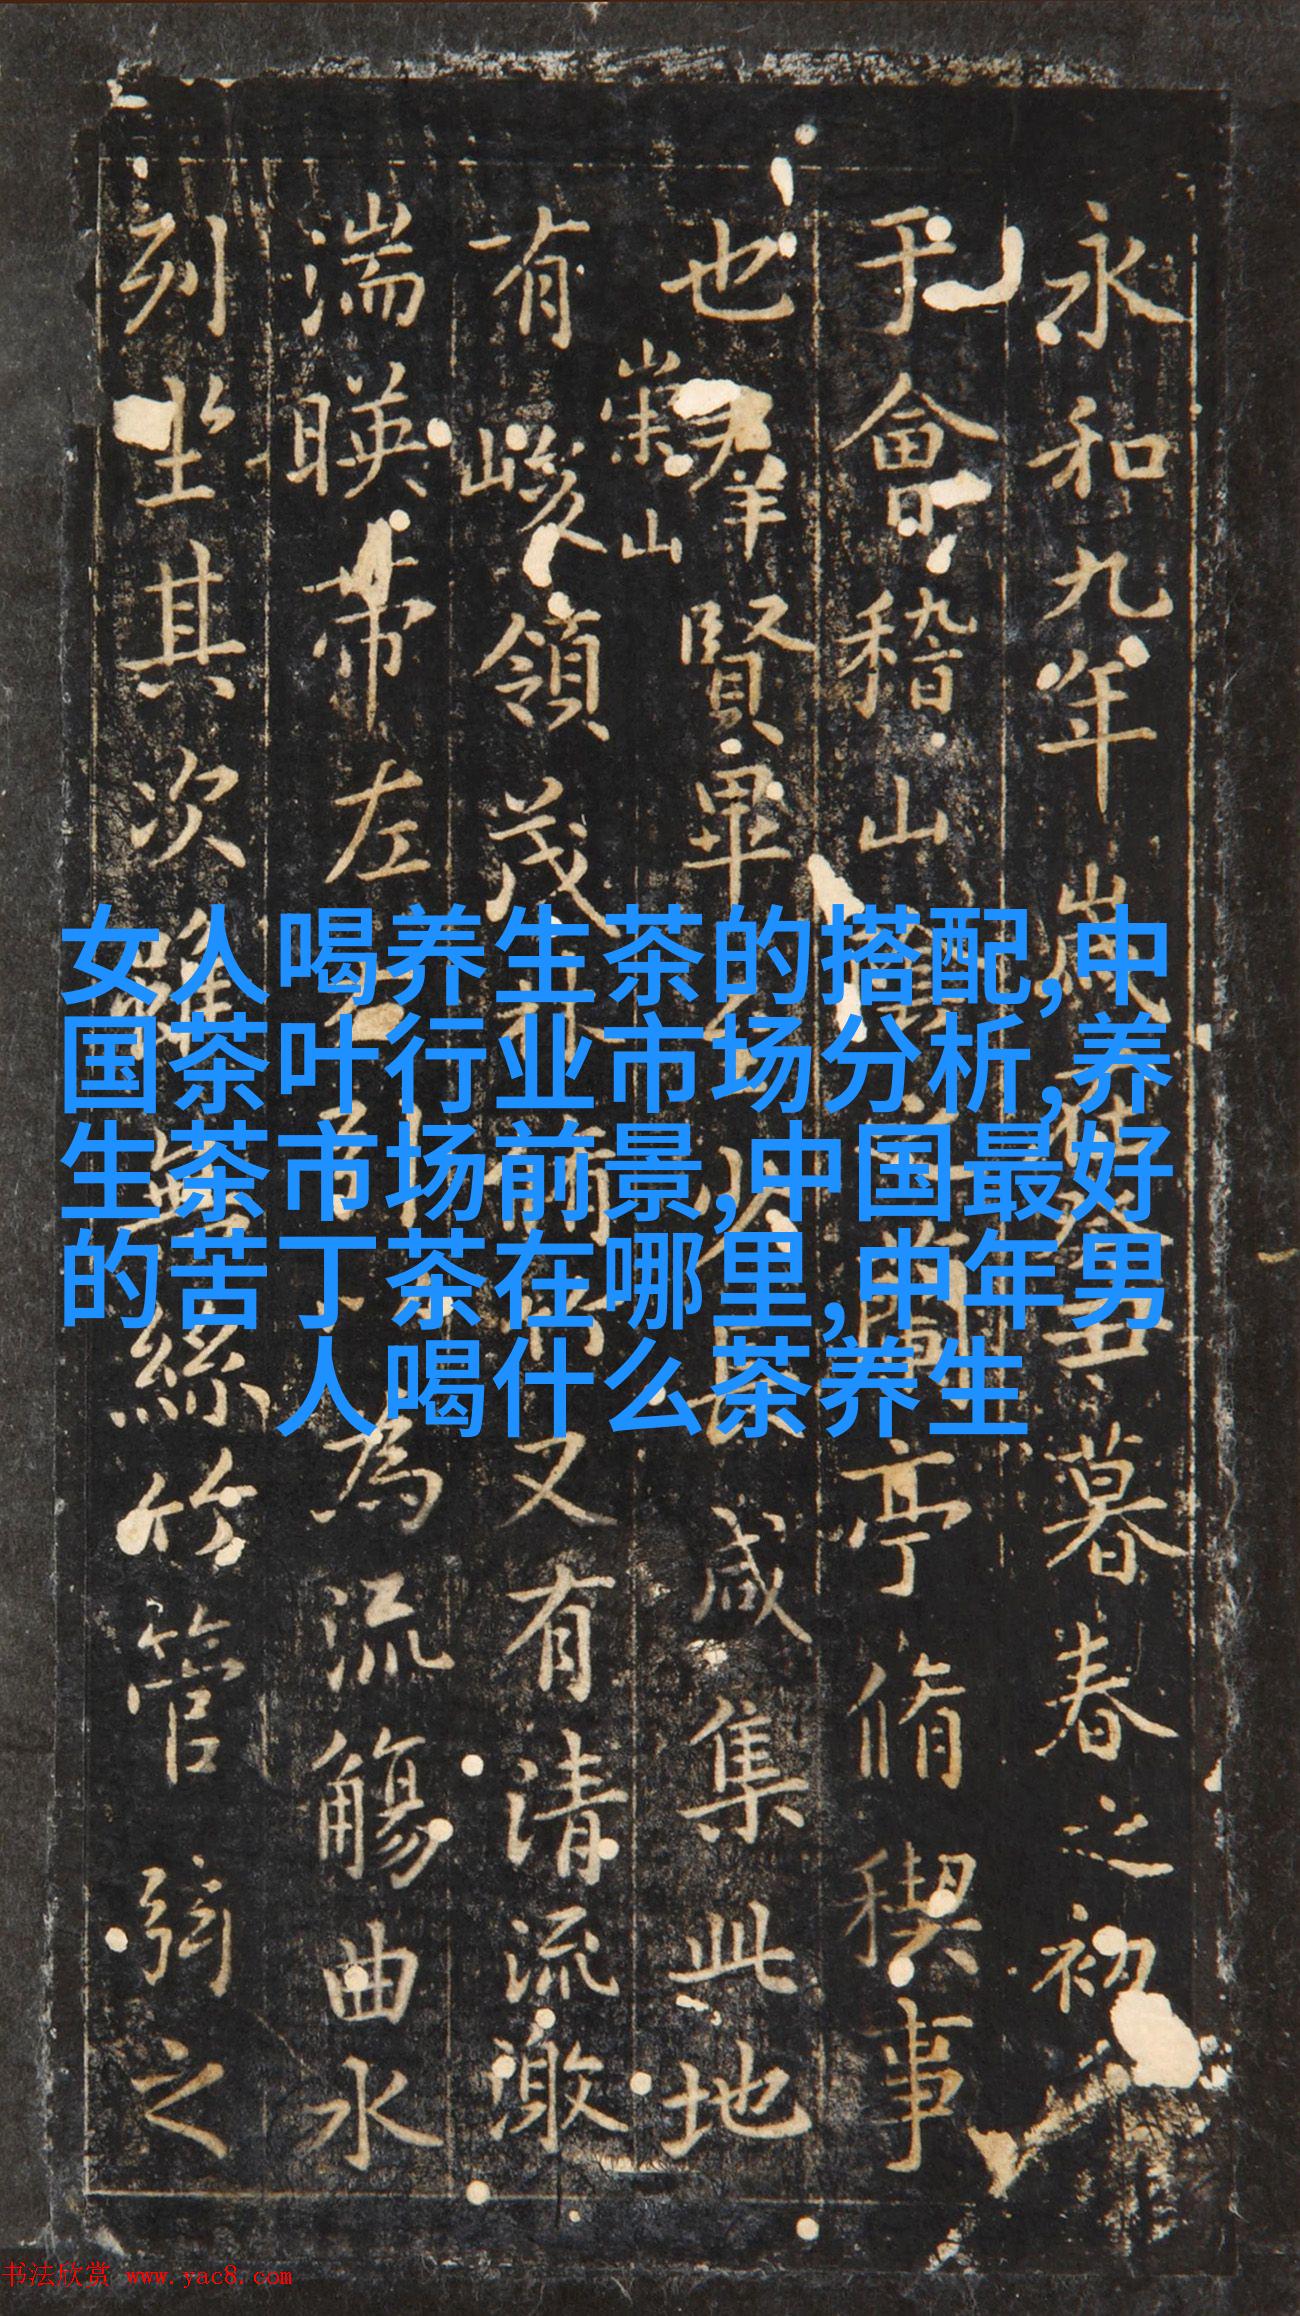 永和九年歲在癸丑暮春之初
于會稽山陰之蘭亭脩稧事
也羣賢畢至少長咸集此地
崇山
有峻領茂林脩竹又有清流激
湍暎帶左右引以為流觴曲水
列坐其次雖無絲竹管弦之
女人喝养生茶的搭配,中
国茶叶行业市场分析,养
生茶市场前景,中国最好
的苦丁茶在哪里,中年男
人喝什么茶养生
书法欣赏 www.yac8.com